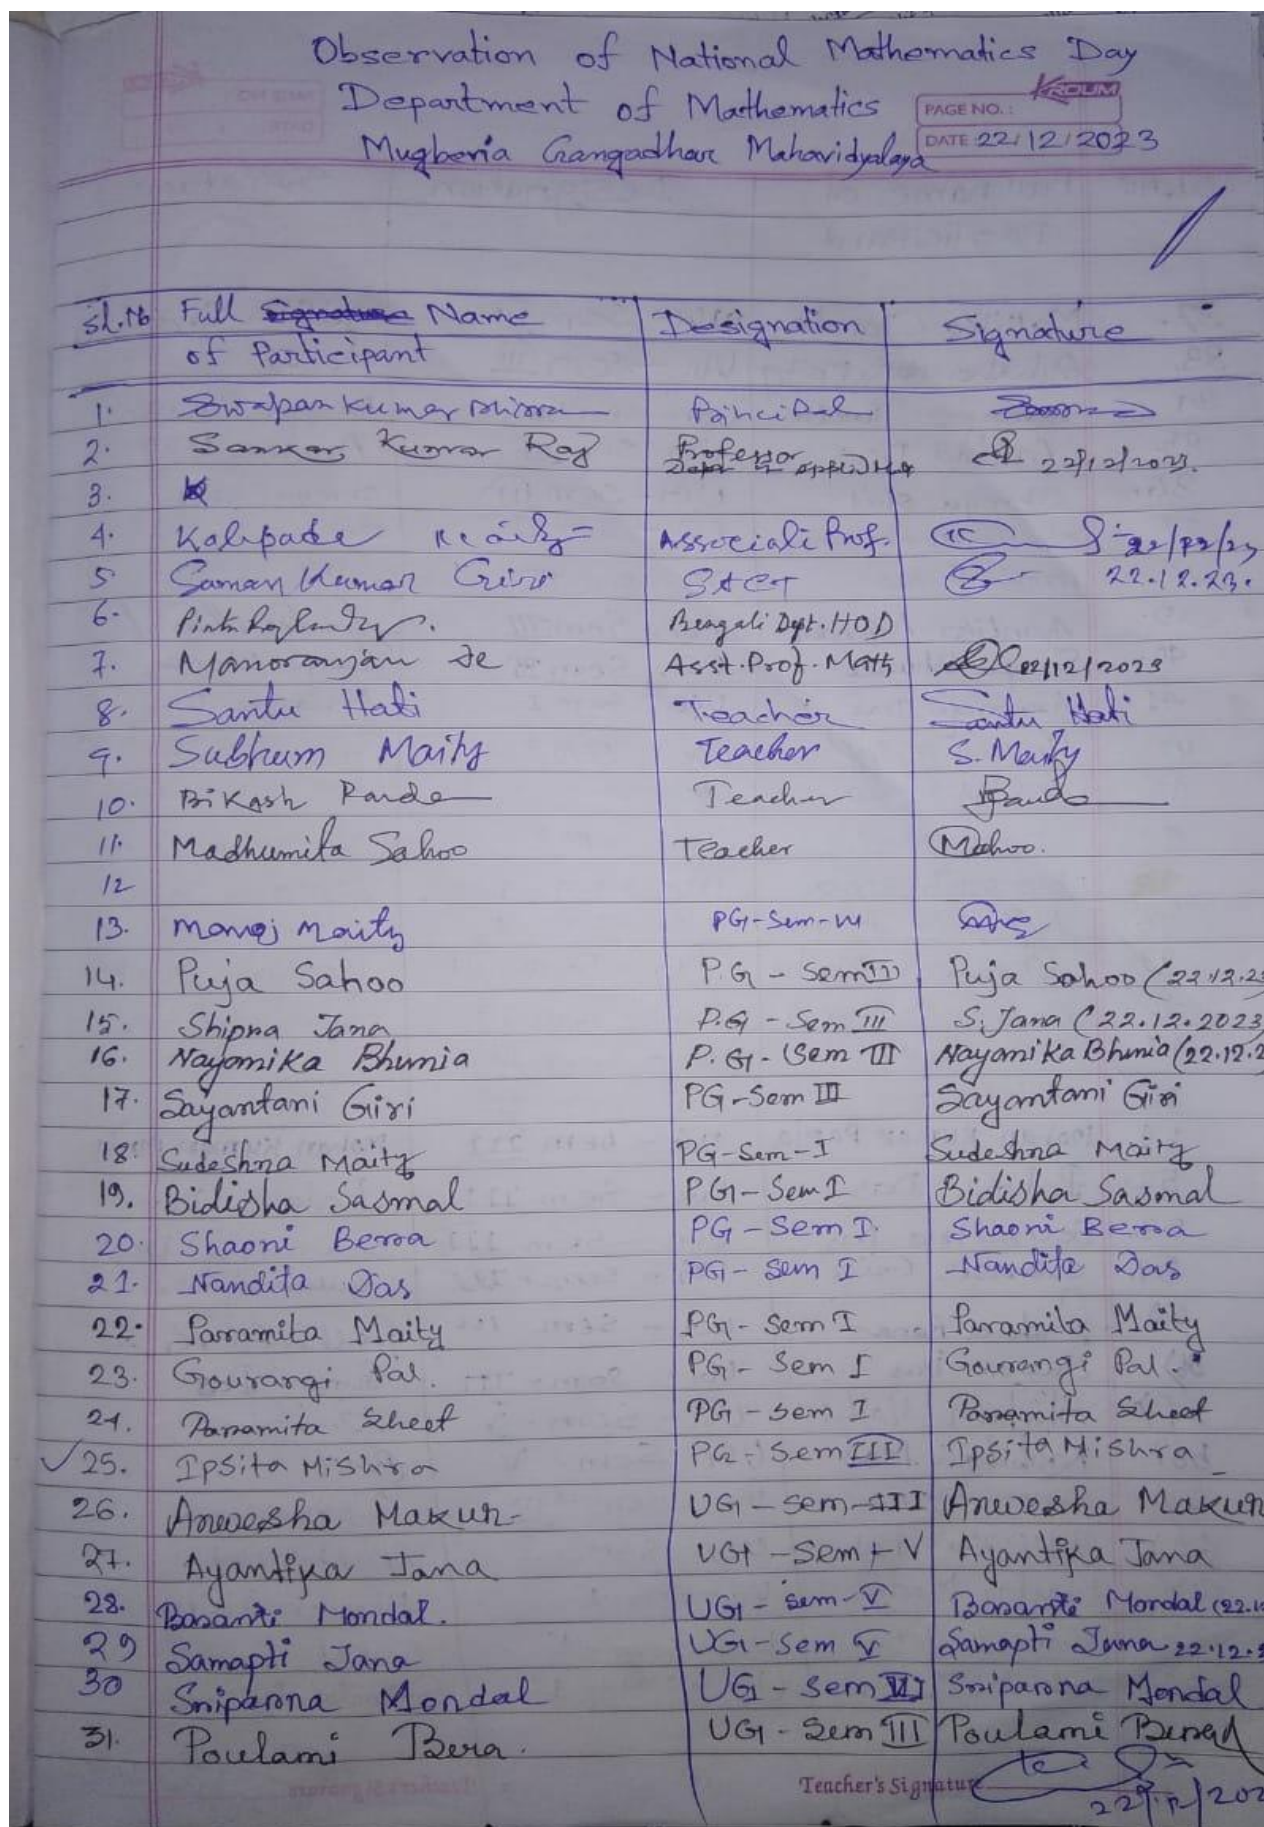 Observation of National Mathematics Day
Department of Mathematics
KROUM
PAGE NO.:
Mugberia Gangadhar Mahavidyalaya
DATE 22/12/2023
Sl.No Full Name Designation Signature
of Participant
1. Swapan Kumar Misra Principal
2. Sankar Kumar Roy Professor 22/12/2023.
3.
4. Kalipada Maity Associate Prof. 22/12/23
5 Saman Kumar Giri SACT 22.12.23.
6. Bengali Dept. HOD
7. Manoranjan De Asst. Prof. Math 22/12/2023
8. Santu Hati Teacher Santu Hati
9. Subhum Maity Teacher S. Maity
10. Bikash Panda Teacher BPanda
11. Madhumita Sahoo Teacher MSahoo.
12
13. Manoj Maity PG-Sem-III
14. Puja Sahoo P.G - Sem III Puja Sahoo (22.12.23
15. Shipra Jana P.G - Sem III S. Jana (22.12.2023)
16. Nayamika Bhunia P.G - Sem III Nayamika Bhunia (22.12.2
17. Sayantani Giri PG-Sem III Sayantani Giri
18. Sudeshna Maity PG-Sem-I Sudeshna Maity
19. Bidisha Sasmal PG-Sem I Bidisha Sasmal
20. Shaoni Bera PG-Sem I. Shaoni Bera
21. Nandita Das PG-Sem I Nandita Das
22. Paramita Maity PG-Sem I Paramita Maity
23. Gourangi Pal. PG-Sem I Gourangi Pal.
24. Paramita Sheet PG-Sem I Paramita Sheet
✓25. Ipsita Mishra PG-Sem III Ipsita Mishra
26. Anwesha Makur UG-Sem-III Anwesha Makur
27. Ayantika Jana UG-Sem-V Ayantika Jana
28. Basanti Mondal. UG-Sem-V Basanti Mondal (22.1
29 Samapti Jana UG-Sem V Samapti Jana 22.12.2
30 Sniparna Mondal UG-Sem Sniparna Mondal
31. Poulami Bera. UG-Sem III Poulami Bera
Teacher's Signature
22/12/202